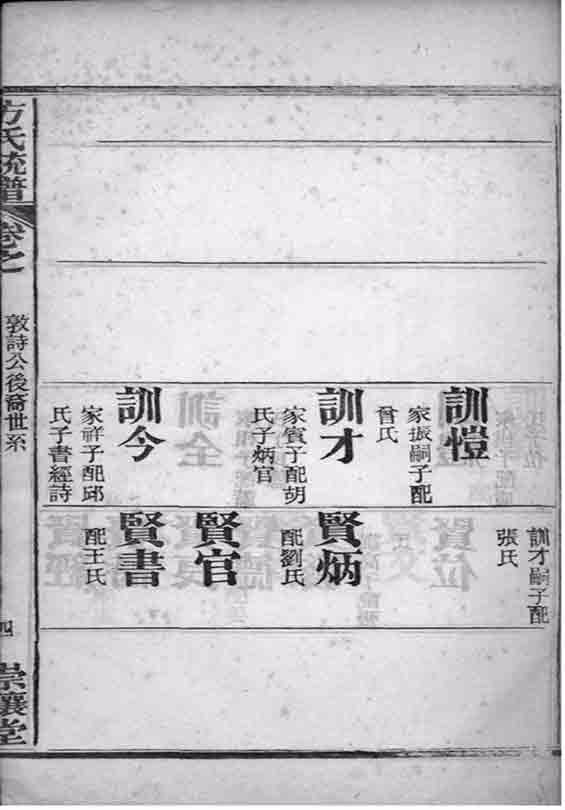 訓愷
家振嗣子配
曾氏
訓才
家賓子配胡
氏子炳官
訓今
家祥子配邱
氏子書經詩
訓才嗣子配
張氏
賢炳
配劉氏
賢官
賢書
配王氏
方氏統譜
卷之
敦詩公後裔世系
四
崇讓堂